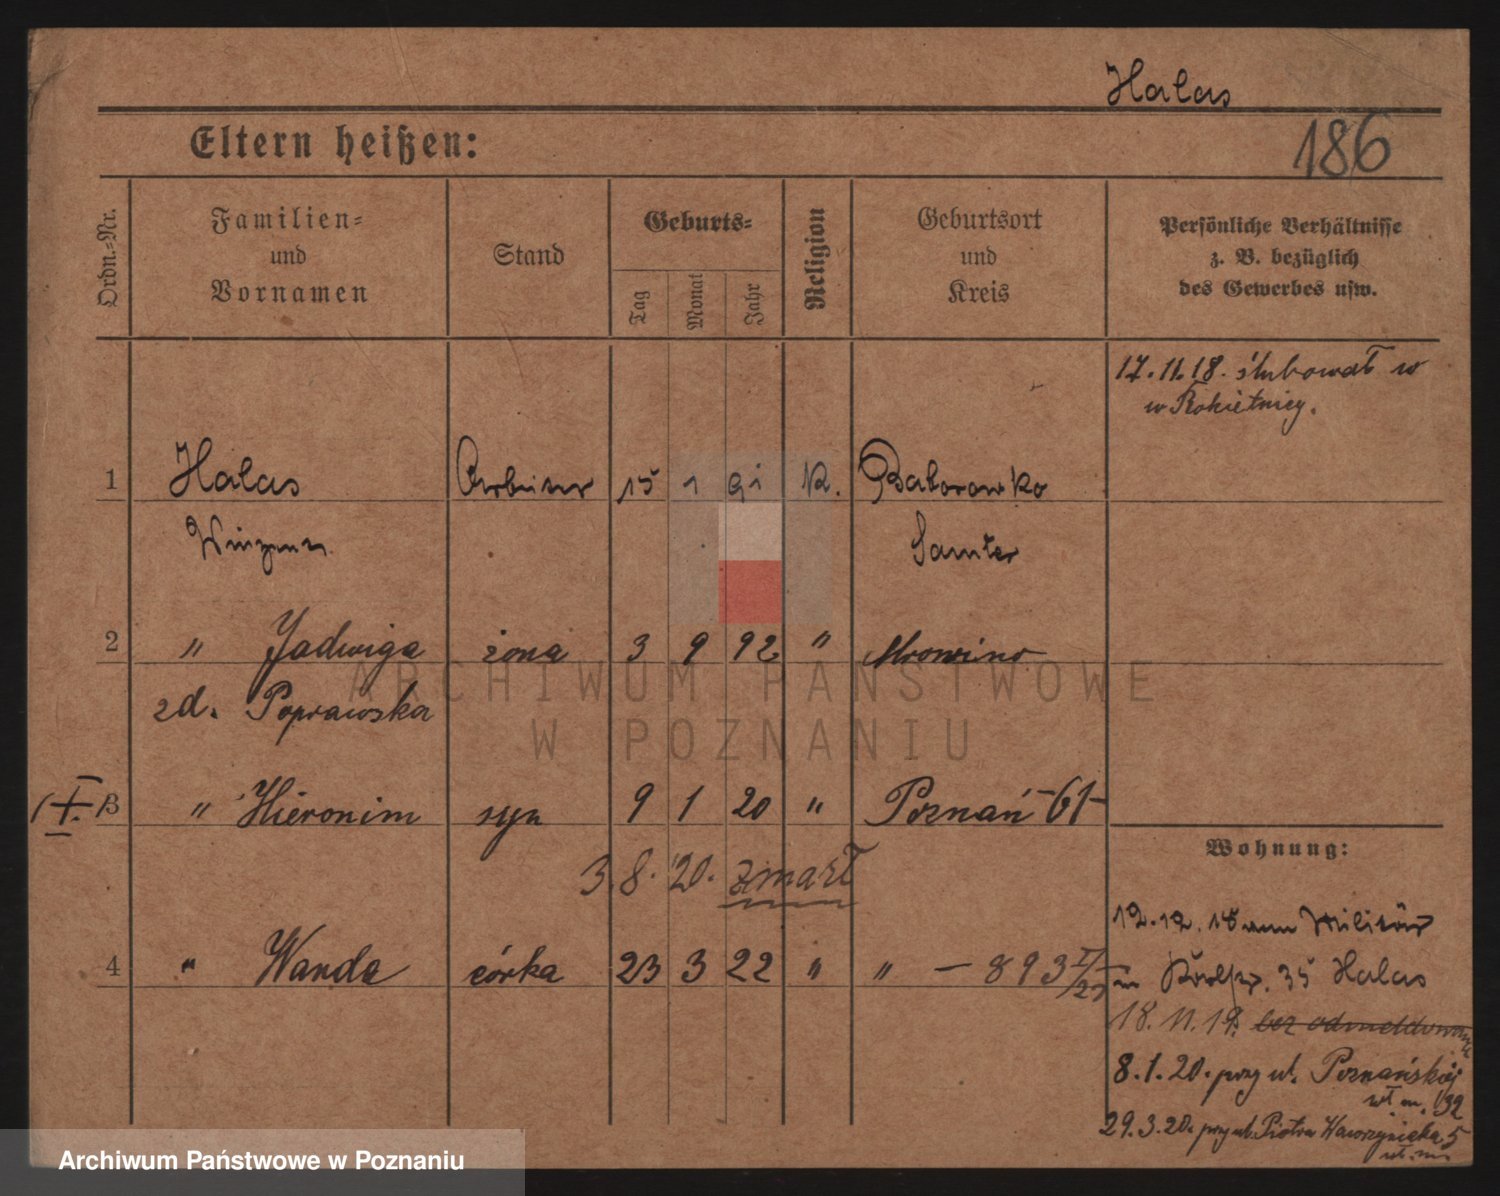 Halas
186
Eltern heißen:
Ordn.-Nr.
Familien-
und
Vornamen
Stand
Geburts-
Tag
Monat
Jahr
Religion
Geburtsort
und
Kreis
Persönliche Verhältnisse
z. B. bezüglich
des Gewerbes usw.
17.11.18. ślubował w
w Rokietnicy.
1 Halas Arbeiter 15 1 91 K. Baborowko
Samter
2 " Jadwiga żona 3 9 92 " Mrowino
zd. Poprawska
3 " Hieronim syn 9 1 20 " Poznań -61-
3.8.20. zmarł
4 " Wanda córka 23 3 22 " " - 893 I/22
Wohnung:
12.12.18 vom Militär
35 Halas
18.11.19. bez odmeldowania
8.1.20. przy ul. Poznańskiej
wł. m. 32
29.3.20. przy ul. Piotra Wawrzyniaka 5
ARCHIWUM PAŃSTWOWE
W POZNANIU
Archiwum Państwowe w Poznaniu